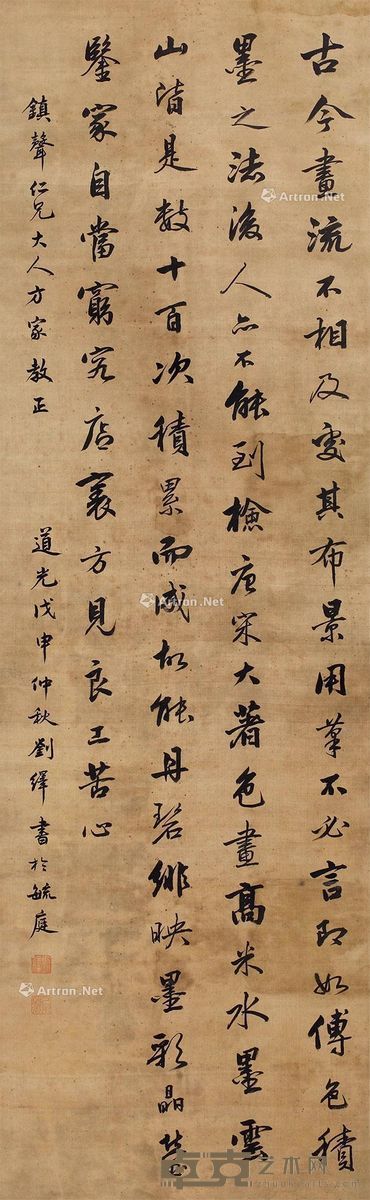 古今畫流不相及處其布景用筆不必言即如傅色積
墨之法後人亦不能到檢唐宋大著色畫高米水墨雲
山皆是數十百次積累而成故能丹碧緋映墨彩晶瑩
鑒家自當窮究底裏方見良工苦心
鎮聲仁兄大人方家教正
道光戊申仲秋劉繹書於毓庭
Artron.Net
Artron.Net
Artron.Net
艺术网
www.zhuokearts.com